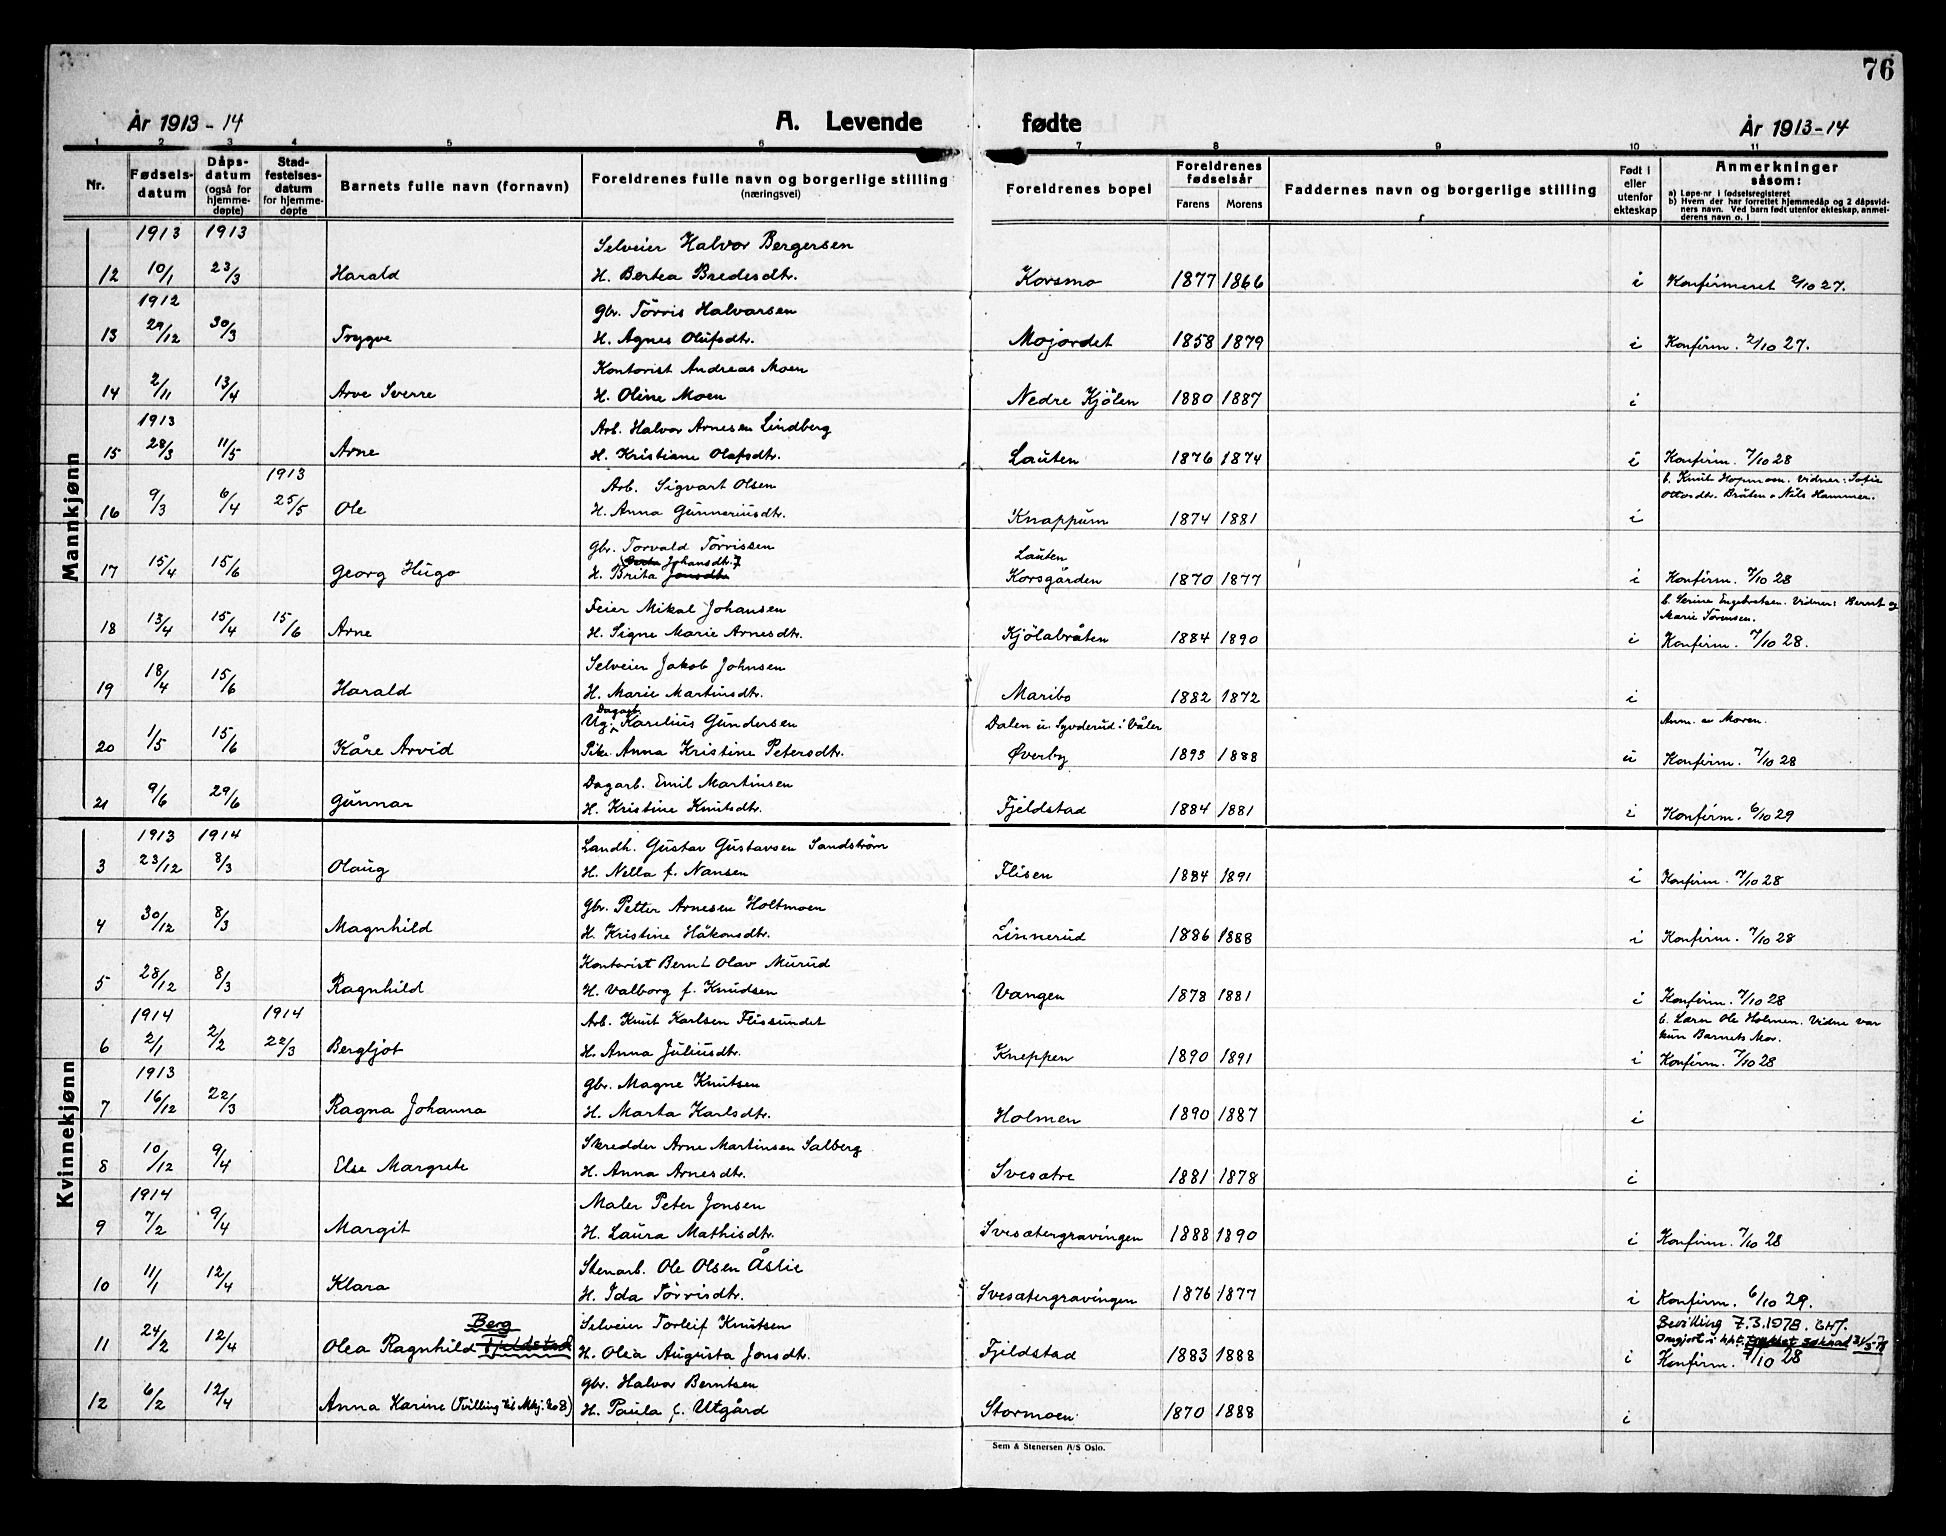 76
År 1913-14
A. Levende fødte
År 1913-14
1 2 3 4 5 6 7 8 9 10 11
Nr.
Fødsels-datum
Dåps-datum (også for hjemme-døpte)
Stad-festelses-datum for hjemme-døpte
Barnets fulle navn (fornavn)
Foreldrenes fulle navn og borgerlige stilling (næringsvei)
Foreldrenes bopel
Foreldrenes fødselsår
Farens Morens
Faddernes navn og borgerlige stilling
Født i eller utenfor ekteskap
Anmerkninger såsom:
a) Løpe-nr i fødselsregisteret
b) Hvem der har forrettet hjemmedåp og 2 dåpsvid-
ners navn. Ved barn født utenfor ekteskap, anmel-
derens navn o. l
Mannkjønn
1913 1913 Selveier Halvor Bergersen
12 10/1 23/3 Harald H. Bertea Bredesdtr. Korsmo 1877 1866 i Konfirmeret 2/10 27.
1912 Gbr. Törris Halvorsen
13 29/12 30/3 Trygve H. Agnes Olufsdtr. Mojordet 1858 1879 i Konfirm. 2/10 27.
Kontorist Andreas Moen
14 2/11 13/4 Arve Sverre H. Oline Moen Nedre Kjölen 1880 1887 i
1913 Arb. Halvor Arnesen Lindberg
15 28/3 11/5 Arne H. Kristiane Olafsdtr. Lauten 1876 1874 i Konfirm. 7/10 28
1913 Arb. Sigvart Olsen b. Knut Hopmoen. Vidner: Sofie
Ottosdtr. Bråten o Nils Hammer.
16 9/3 6/4 25/5 Ole H. Anna Gunneriusdtr. Knappum 1874 1881 i
Gbr. Torvald Törrissen Lauten
Johansdtr.
17 15/4 15/6 Georg Hugo H. Brita Jonsdtr Korsgården 1870 1877 i Konfirm. 7/10 28
Feier Mikal Johansen b. Serine Engebretsen. Vidner: Bernt og
Marie Sörensen.
18 13/4 15/4 15/6 Arne H. Signe Marie Arnesdtr. Kjölabråten 1884 1890 i Konfirm. 7/10 28.
Selveier Jakob Johnsen
19 18/4 15/6 Harald H. Marie Martinsdtr. Maribo 1882 1872 i
Dagarb.
Ug. Karelius Gundersen Dalen u. Syverud i Våler Anm. av Moren.
20 1/5 15/6 Kåre Arvid Pike Anna Kristine Petersdtr. Øverby 1893 1888 u Konfirm. 7/10 28
Dagarb. Emil Martinsen
21 9/6 29/6 Gunnar H. Kristine Knutsdtr. Fjeldstad 1884 1881 i Konfirm. 6/10 29
Kvinnekjønn
1913 1914 Landh. Gustav Gustavsen Sandström
3 23/12 8/3 Olaug H. Nella f. Nansen Flisen 1884 1891 i Konfirm. 7/10 28
Gbr. Petter Arnesen Holtmoen
4 30/12 8/3 Magnhild H. Kristine Håkonsdtr. Linnerud 1886 1888 i Konfirm. 7/10 28
Kontorist Bernt Olav Murud
5 28/12 8/3 Ragnhild H. Valborg f. Knudsen Vangen 1878 1881 i Konfirm. 7/10 28
1914 1914 Arb. Knut Karlsen Flissundet b. Lærer Ole Holmen. Vidne var
kun Barnets Mor.
6 2/1 2/2 22/3 Bergljot H. Anna Juliusdtr. Kneppen 1890 1891 i Konfirm. 7/10 28
1913 Gbr. Magne Knutsen
7 16/12 22/3 Ragna Johanna H. Marta Karlsdtr. Holmen 1890 1887 i
Skredder Arne Martinsen Salberg
8 10/12 9/4 Else Margrete H. Anna Arnesdtr. Svesætre 1881 1878 i
1914 Maler Peter Jonsen
9 7/2 9/4 Margit H. Laura Mathisdtr. Svesætergravingen 1888 1890 i Konfirm. 7/10 28
Stenarb. Ole Olsen Åslie
10 11/1 12/4 Klara H. Ida Törrisdtr. Svesætergravingen 1876 1877 i Konfirm. 6/10 29.
Berg Selveier Torleif Knutsen Bevilling 7.3.1978. GHJ.
Omgjort i hht. søknad
11 24/2 12/4 Olea Ragnhild Fjeldstad H. Olea Augusta Jonsdtr. Fjeldstad 1883 1888 i Konfirm. 7/10 28
Gbr. Halvor Berntsen
12 6/2 12/4 Anna Karine (Tvilling til Mkj. No 8) H. Paula f. Utgård Stormoen 1870 1888 i
Sem & Stenersen A/S Oslo.